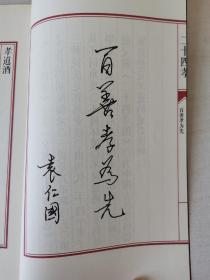 百善孝為先
袁仁國
二十四孝
百善孝为先
孝道酒